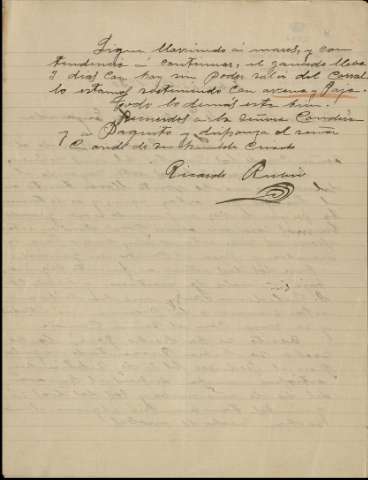 Sigue lloviendo á mares, y con
tendencia á continuar, el ganado lleva
3 dias con hoy sin poder salir del corral
lo estamos sosteniendo con avena y Paja.
Todo lo demas esta bien.
Recuerdos a la señora Condesa
y a Paquito y disponga el señor
Conde de su humilde Criado
Ricardo Rubio